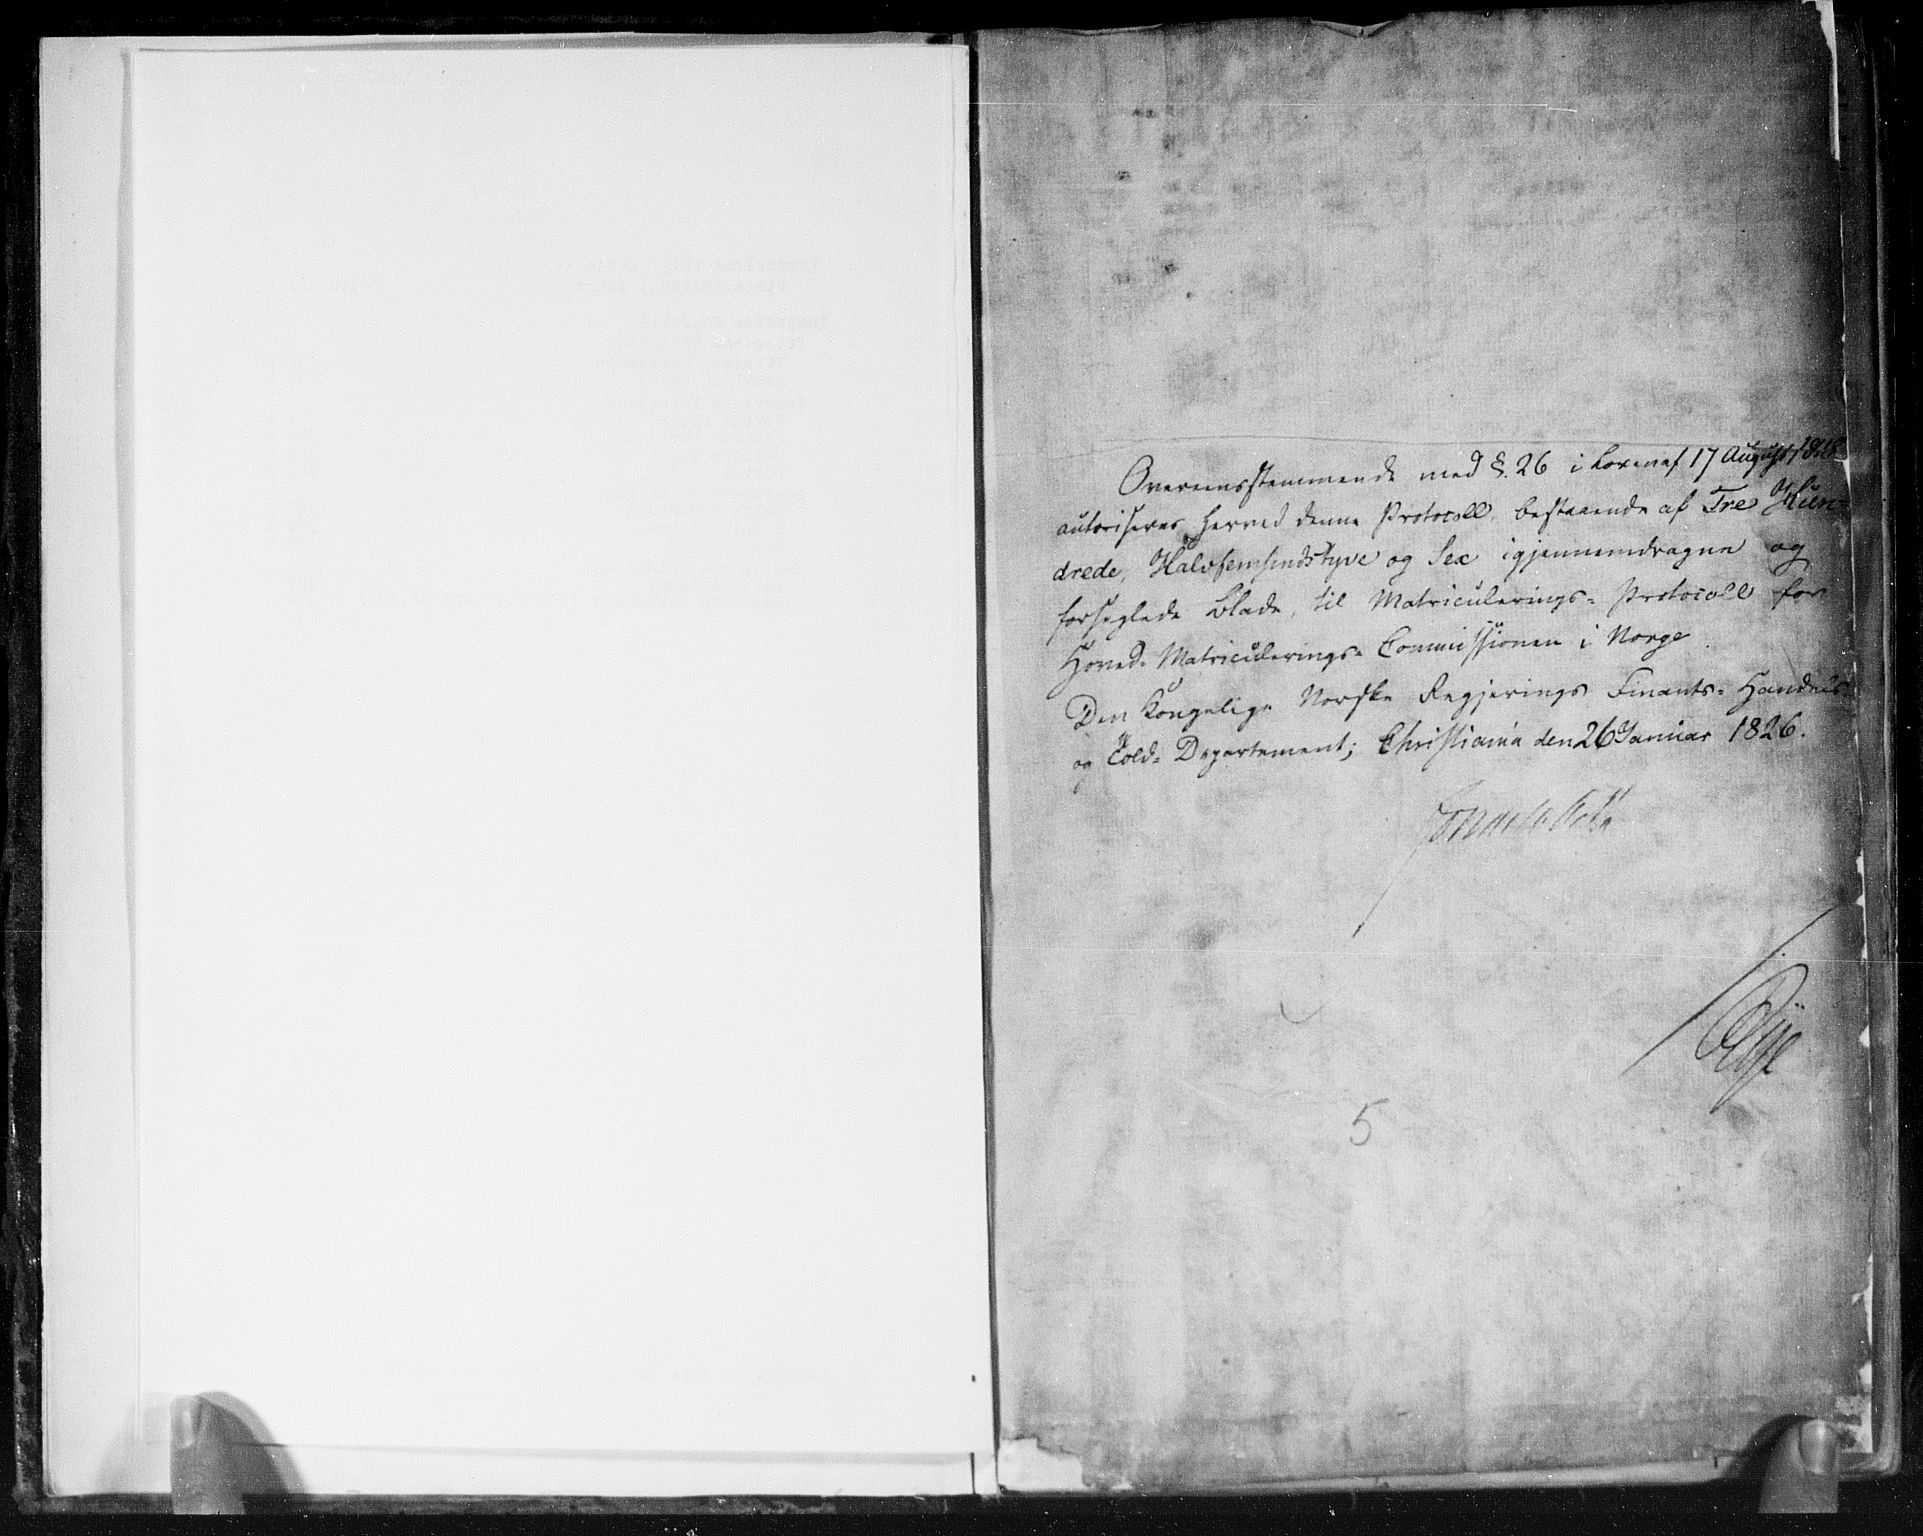 Overeensstemmende med §. 26 i Loven af 17 August 1818
autoriseres herved denne Protocoll, bestaaende af Tre Hun-
drede, Halvfemsindstyve og Sex igjennemdragne og
forseglede Blade, til Matriculerings- Protocoll for
Hoved- Matriculerings- Commissionen i Norge.
Den Kongelige Norske Regjerings Finants- Handels-
og Told- Departement; Christiania den 26 Januar 1826.
5